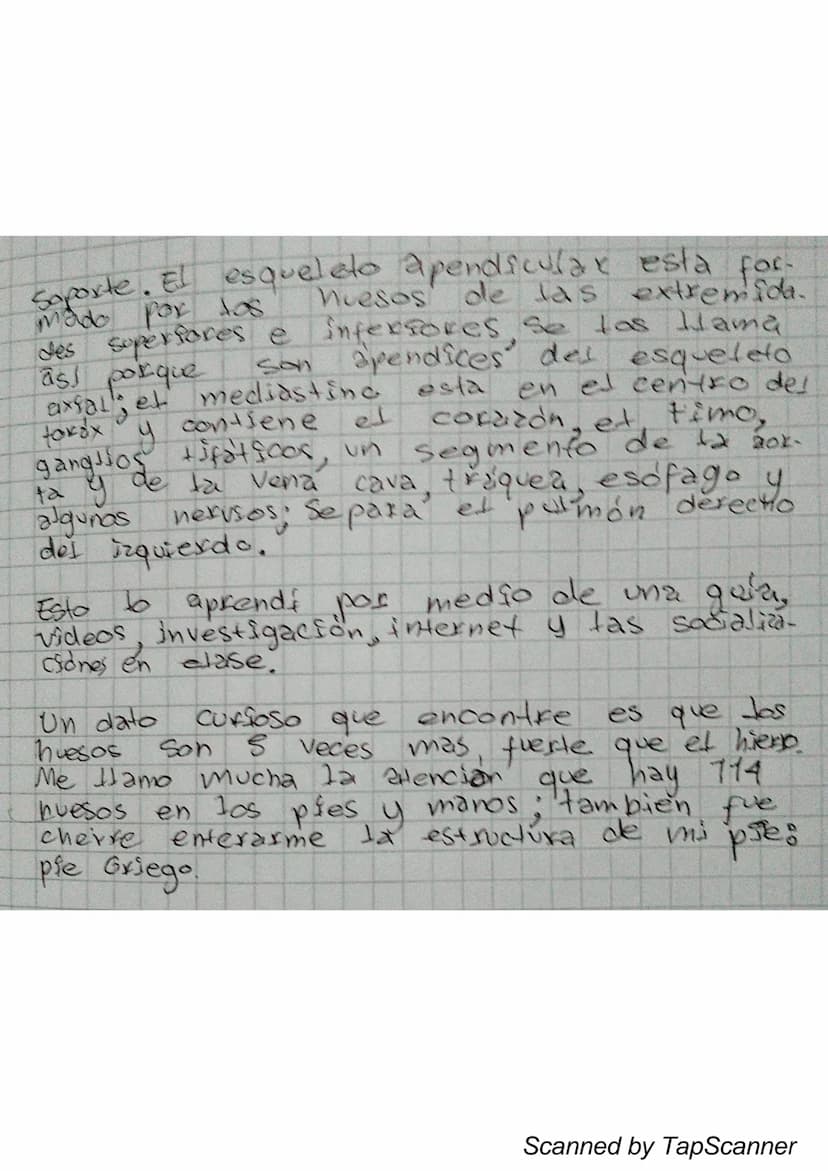 soporte. El esqueleto apendicular esta for-
mado por los huesos de las extremida-
des superiores e inferiores, se los llama
así porque son "apendices" del esqueleto
axial; el mediastino esta en el centro del
torax y contiene el corazón, el timo,
ganglios lifáticos, un segmento de la aor-
ta y de la vena cava, tráquea, esófago y
algunos nervios; separa el pulmón derecho
del izquierdo.
Esto lo aprendí por medio de una guía,
videos, investigación, internet y las socializa-
ciones en clase.
Un dato curioso que encontre es que los
huesos son 5 veces mas fuerte que el hierro.
Me llamo mucha la atención que hay 114
huesos en los pies y manos; también fue
chevre enterarme la estructura de mi pie:
pie Griego.
Scanned by TapScanner